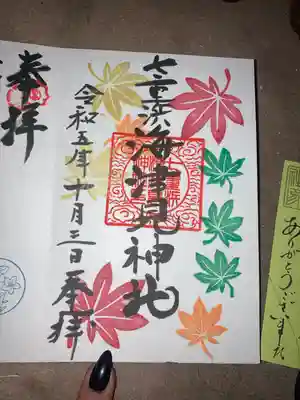 七重浜海津見神社
令和五年十月三日奉拝
奉拝
ありがとうございました